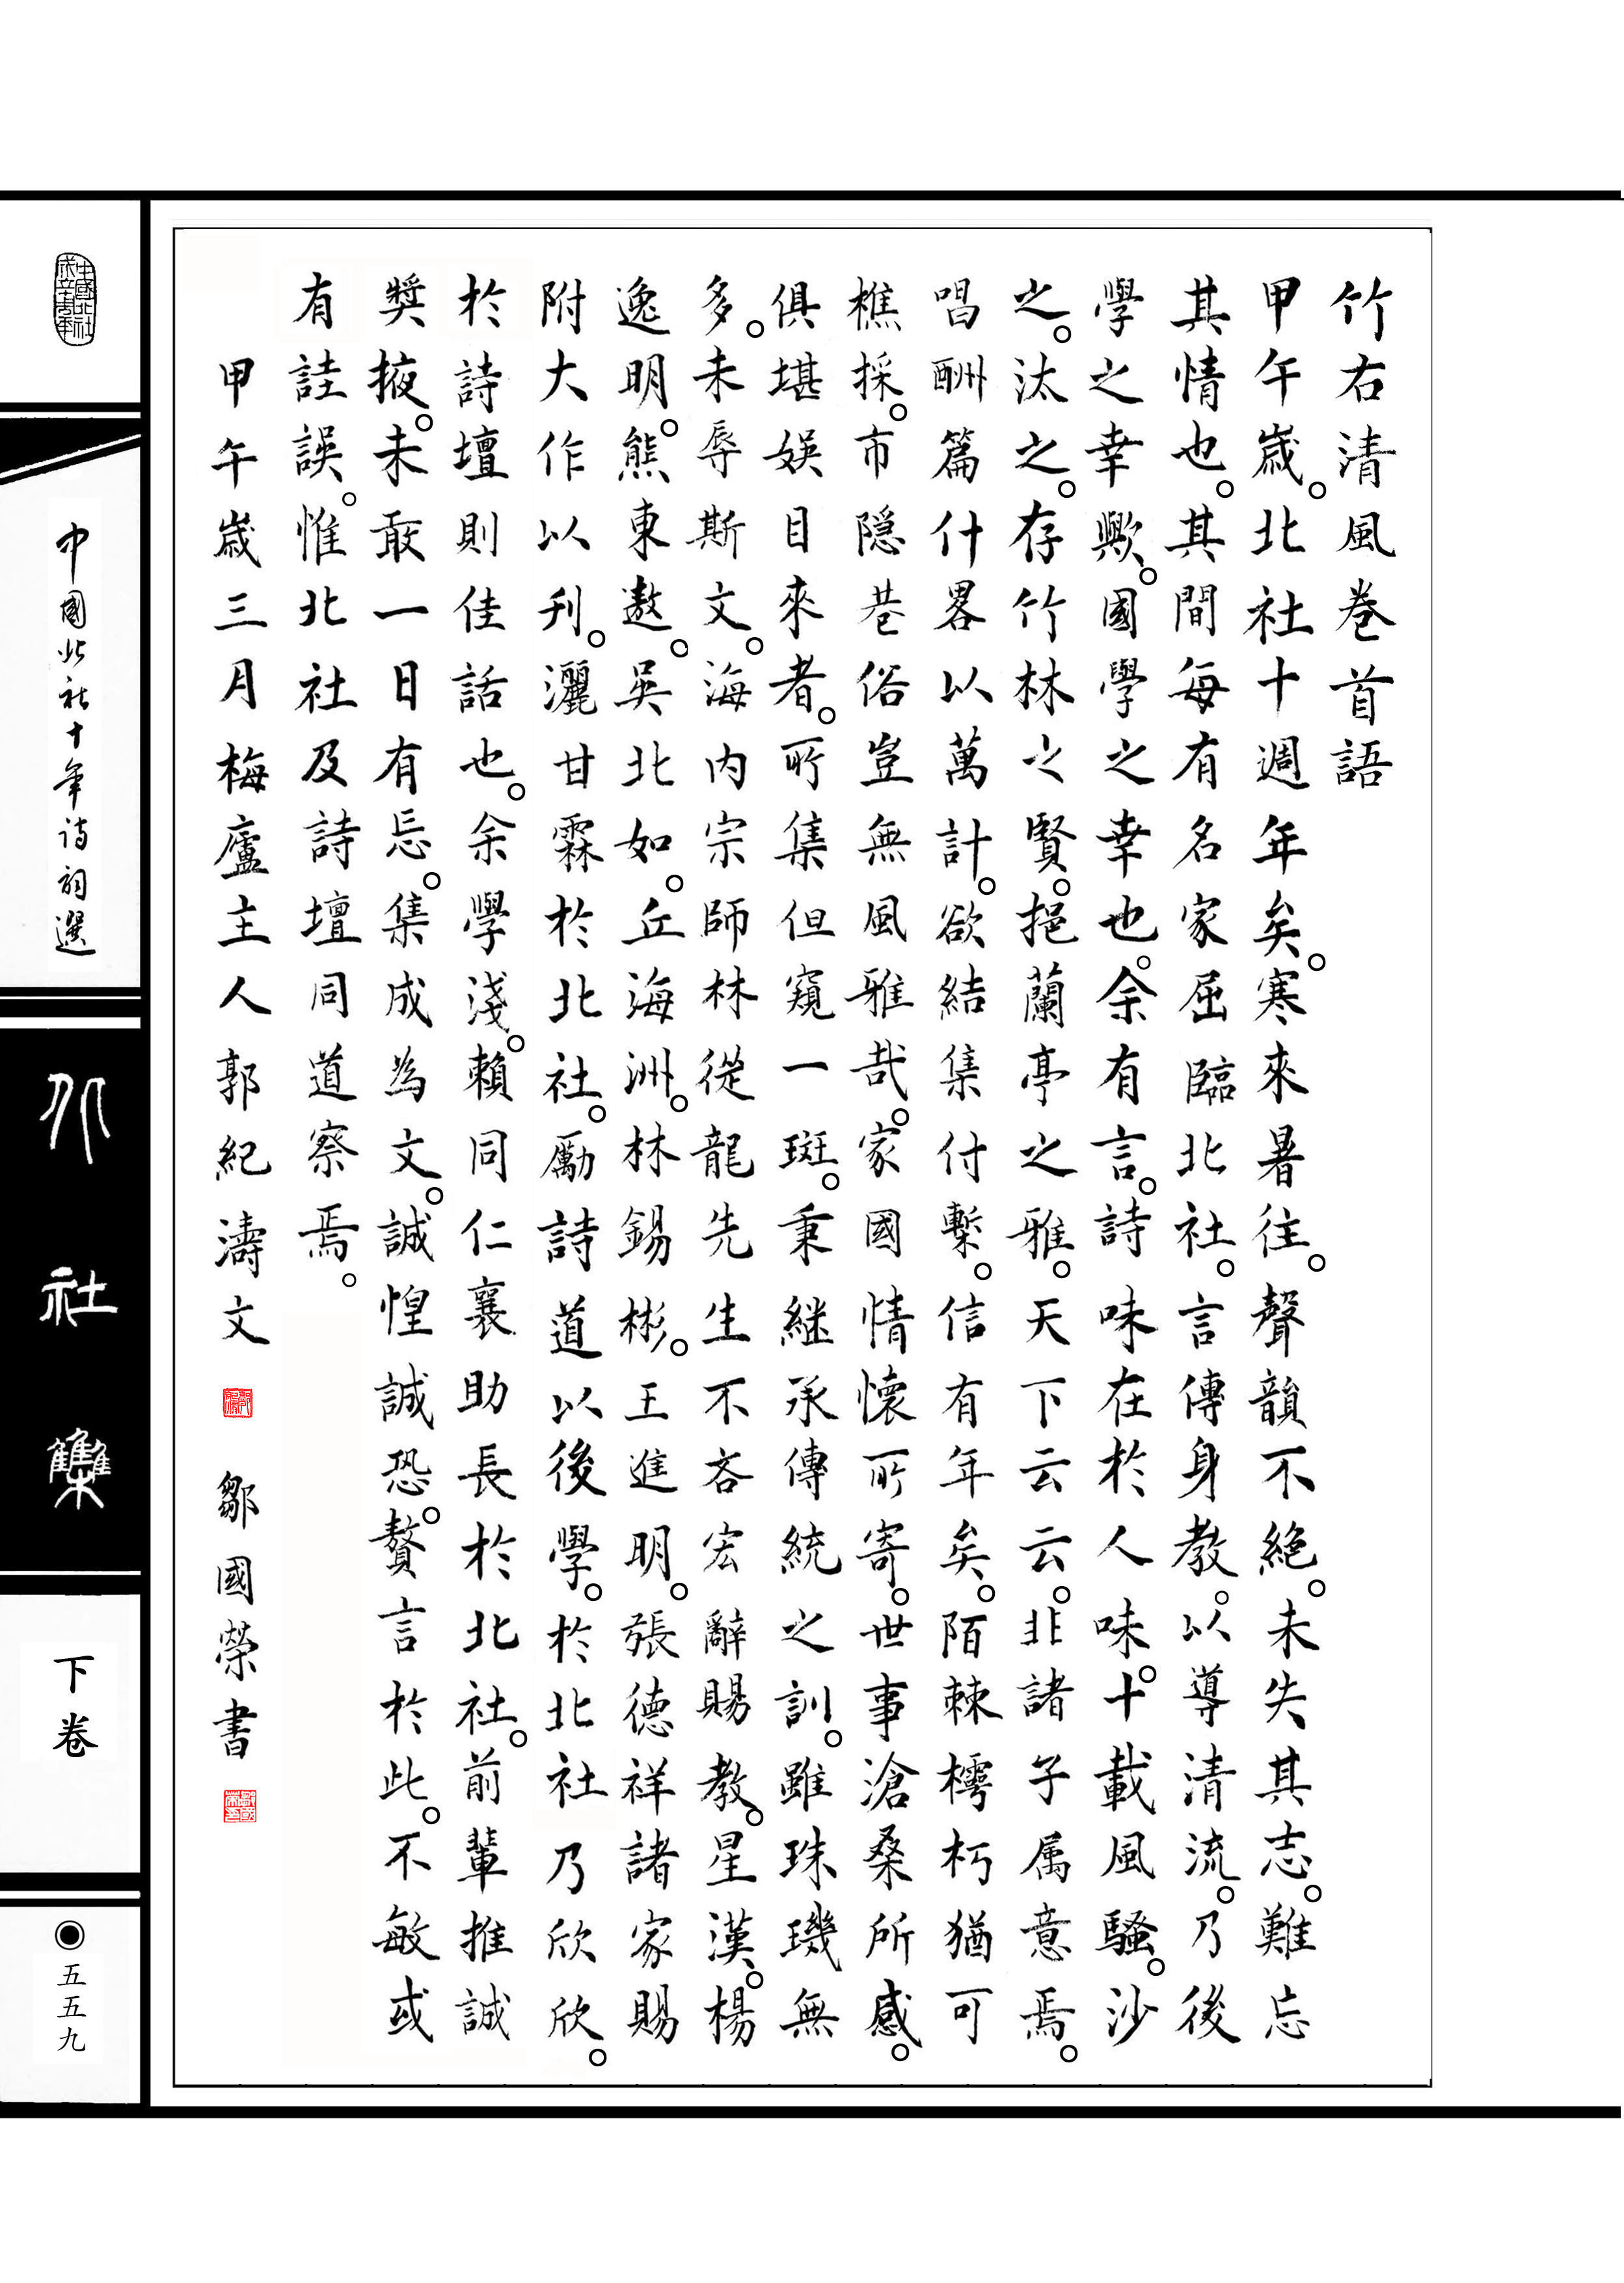 竹右清風卷首語
甲午歲。北社十週年矣。寒來暑往。聲韻不絕。未失其志。難忘
其情也。其間每有名家屈臨北社。言傳身教。以導清流。乃後
學之幸歟。國學之幸也。余有言。詩味在於人味。十載風騷。沙
之。汰之。存竹林之賢。挹蘭亭之雅。天下云云。非諸子属意焉。
唱酬篇什畧以萬計。欲結集付槧。信有年矣。陌棘樗朽猶可
樵採。市隱巷俗豈無風雅哉。家國情懷所寄。世事滄桑所感。
俱堪娛目來者。所集但窺一斑。秉繼承傳統之訓。雖珠璣無
多。未辱斯文。海内宗師林從龍先生不吝宏辭賜教。星漢。楊
逸明。熊東遨。吳北如。丘海洲。林錫彬。王進明。張德祥諸家賜
附大作以刋。灑甘霖於北社。勵詩道以後學。於北社乃欣欣。
於詩壇則佳話也。余學淺。賴同仁襄助長於北社。前輩推誠
獎掖。未敢一日有忘。集成為文。誠惶誠恐。贅言於此。不敏或
有詿誤。惟北社及詩壇同道察焉。
甲午歲三月梅廬主人郭紀濤文 鄒國榮書
中國北社十年詩詞選
北社集
下卷
五五九